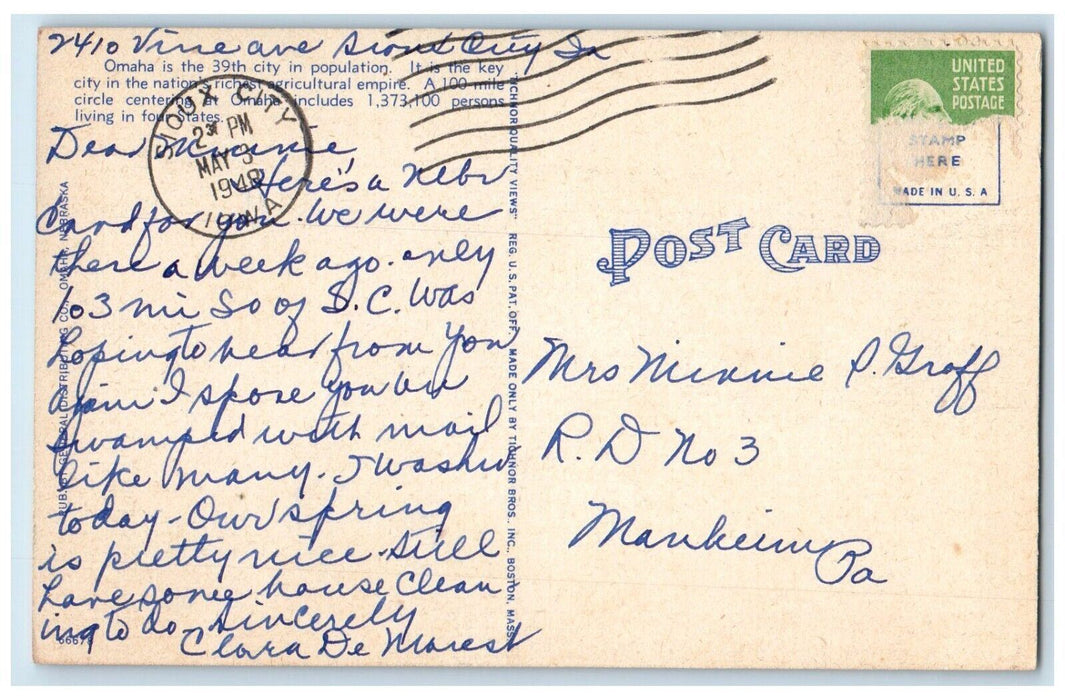 2410 Vine ave Sioux City Ia
Omaha is the 39th city in population. It is the key
city in the nation's richest agricultural empire. A 100 mile
circle centering at Omaha includes 1,373,100 persons
living in four states.
SIOUX CITY
2 PM
MAY 3
1948
IOWA
UNITED
STATES
POSTAGE
STAMP
HERE
MADE IN U. S. A
Dear Minnie
Here's a Nebr
Card for you. We were
there a week ago. only
103 mi So of S.C. Was
hoping to hear from you
again I spose you are
swamped with mail
like many. I washed
today - Our spring
is pretty nice. still
have some house clean
ing to do. sincerely
Clara De Marest
6667
PUB. BY GENERAL DISTRIBUTING CO., OMAHA, NEBRASKA
"TICHNOR QUALITY VIEWS" REG. U. S. PAT. OFF. MADE ONLY BY TICHNOR BROS. INC., BOSTON, MASS.
POST CARD
Mrs Minnie P. Groff
R. D No 3
Manheim
Pa